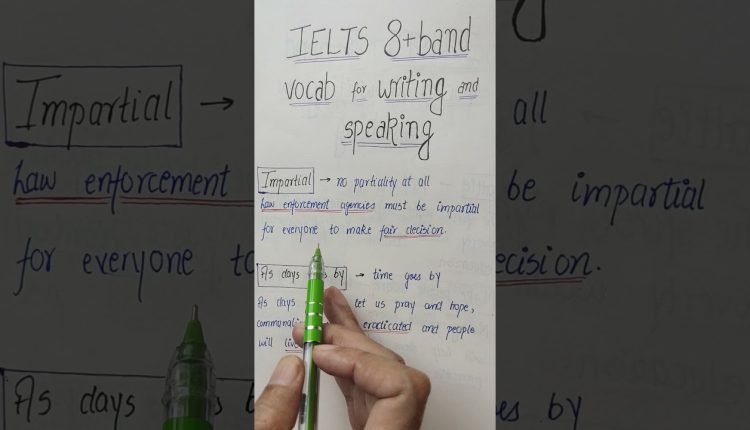 IELTS 8+band
vocab for writing and
speaking
Impartial → no partiality at all
Law enforcement agencies must be impartial
for everyone to make fair decision.
As days by → time goes by
As days let us pray and hope,
eradicated and people
will